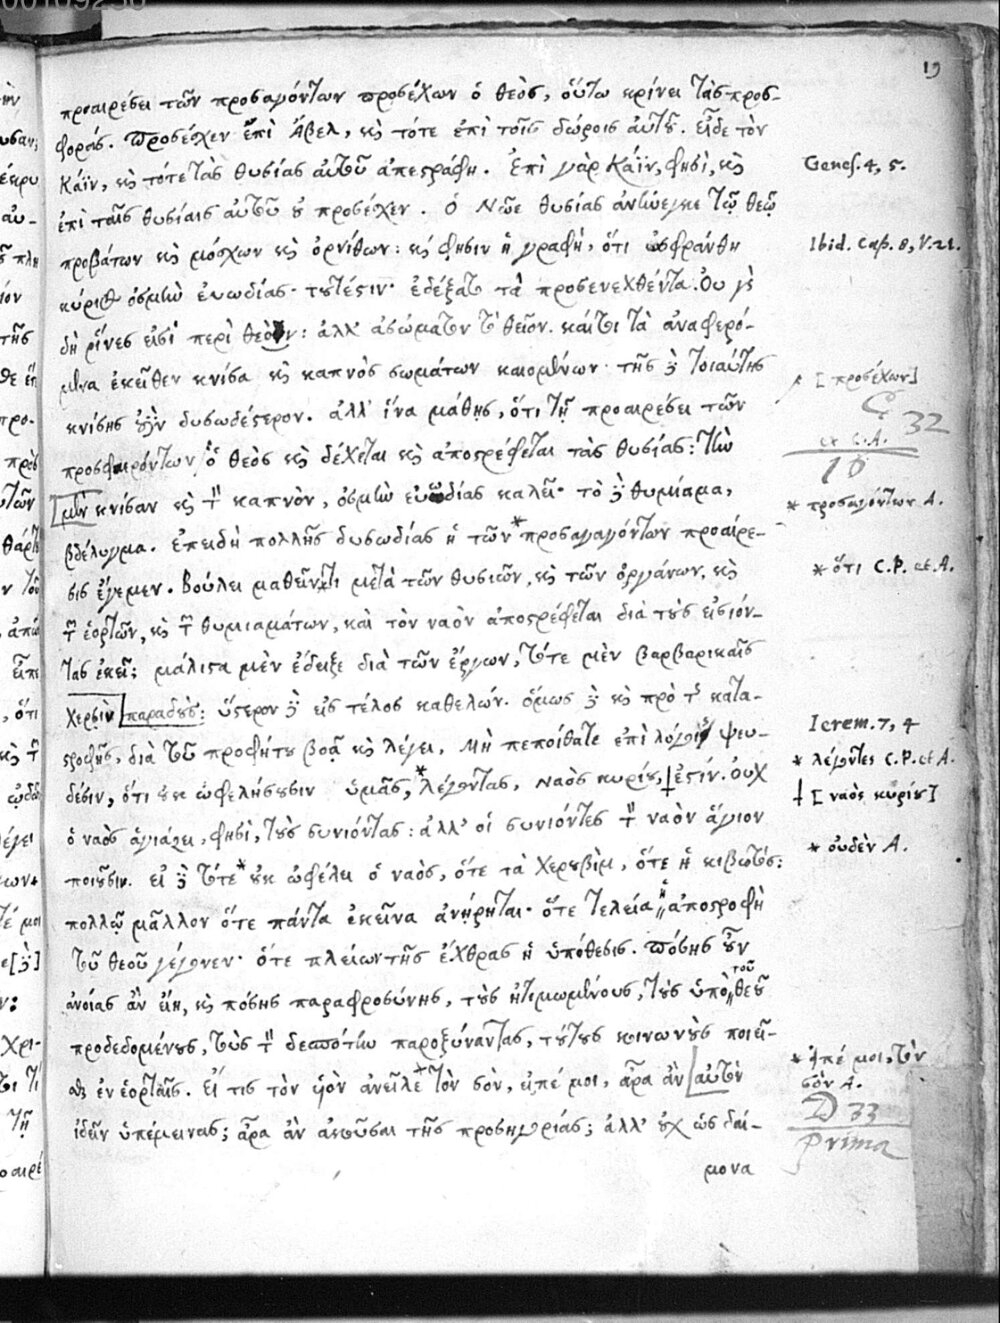 19
προαιρέσει τῶν προσαγόντων προσέχων ὁ θεὸς, οὕτω κρίνει τὰς προσ-
φοράς. Προσέσχεν ἐπὶ Ἄβελ, κỳ τότε ἐπὶ τοῖς δώροις αὐτοῦ. εἶδε τὸν
Κάϊν, κỳ τότε τὰς θυσίας αὐτοῦ ἀπεστράφη. Ἐπὶ γὰρ Κάϊν, φησὶ, κỳ
Genes. 4, 5.
ἐπὶ ταῖς θυσίαις αὐτοῦ οὐ προσέσχεν. ὁ Νῶε θυσίας ἀνήνεγκε τῷ θεῷ
προβάτων κỳ μόσχων κỳ ὀρνίθων: κỳ φησὶν ἡ γραφὴ, ὅτι ὠσφράνθη
Ibid. Cap. 8, V. 21.
κύριος ὀσμὴν εὐωδίας· τουτέστιν· ἐδέξατο τὰ προσενεχθέντα. Οὐ γὰρ
δὴ ῥῖνες εἰσὶ περὶ θεὸν: ἀλλ' ἀσώματον τὸ θεῖον. καίτοι τὰ ἀναφερό-
μενα ἐκεῖθεν κνίσα κỳ καπνὸς σωμάτων καιομένων· τῆς δὲ τοιαύτης
[προσέχων]
κνίσης οὐδὲν δυσωδέστερον. ἀλλ' ἵνα μάθῃς, ὅτι τῇ προαιρέσει τῶν
C 32
προσφερόντων ὁ θεὸς κỳ δέχεται κỳ ἀποστρέφεται τὰς θυσίας: τὴν
et C. A.
10
[μὲν κνίσαν κỳ τὸν καπνὸν, ὀσμὴν εὐωδίας καλεῖ· τὸ δὲ θυμίαμα,
* προσαγόντων A.
βδέλυγμα. ἐπειδὴ πολλῆς δυσωδίας ἡ τῶν * προσαγαγόντων προαίρε-
σις ἔγεμεν. Βούλει μαθεῖν * τι μετὰ τῶν θυσιῶν, κỳ τῶν ὀργάνων, κỳ
* ὅτι C. P. et A.
τῶν ἑορτῶν, κỳ τῶν θυμιαμάτων, καὶ τὸν ναὸν ἀποστρέφεται διὰ τοὺς εἰσιόν-
τας ἐκεῖ; μάλιστα μὲν ἔδειξε διὰ τῶν ἔργων, τότε μὲν βαρβαρικαῖς
χερσὶν [παραδούς: ὕστερον δὲ εἰς τέλος καθελών. ὅμως δὲ κỳ πρὸ τῆς κατα-
στροφῆς, διὰ τοῦ προφήτου βοᾷ κỳ λέγει, Μὴ πεποίθατε ἐπὶ λόγοις ψευ-
Ierem. 7, 4
* λέγοντες C. P. et A.
δέσιν, ὅτι οὐκ ὠφελήσουσιν ὑμᾶς, * λέγοντας, ναὸς κυρίου, † ἐστίν. οὐχ
† [ναὸς κυρίου]
ὁ ναὸς ἁγιάζει, φησὶ, τοὺς συνιόντας: ἀλλ' οἱ συνιόντες τὸν ναὸν ἅγιον
ποιοῦσιν. εἰ δὲ τότε * οὐκ ὠφέλει ὁ ναὸς, ὅτε τὰ Χερουβὶμ, ὅτε ἡ κιβωτός:
* οὐδὲν A.
πολλῷ μᾶλλον ὅτε πάντα ἐκεῖνα ἀνῄρηται· ὅτε τελεία ἡ ἀποστροφὴ
τοῦ θεοῦ γέγονεν· ὅτε πλείων τῆς ἔχθρας ἡ ὑπόθεσις. πόσης οὖν
ἀνοίας ἂν εἴη, κỳ πόσης παραφροσύνης, τοὺς ἠτιμωμένους, τοὺς ὑπὸ τοῦ θεοῦ
προδεδομένους, τοὺς τὸν δεσπότην παροξύναντας, τούτους κοινωνοὺς ποιεῖ-
σθαι ἐν ἑορταῖς. Εἴ τις τὸν υἱὸν ἀνεῖλε * τὸν σὸν, εἰπέ μοι, ἆρα ἂν [αὐτὸν
* εἰπέ μοι, τὸν
σὸν A.
ἰδεῖν ὑπέμεινας; ἆρα ἂν ἀκοῦσαι τῆς προσηγορίας; ἀλλ' οὐχ ὡς δαί-
D 33
prima
μονα